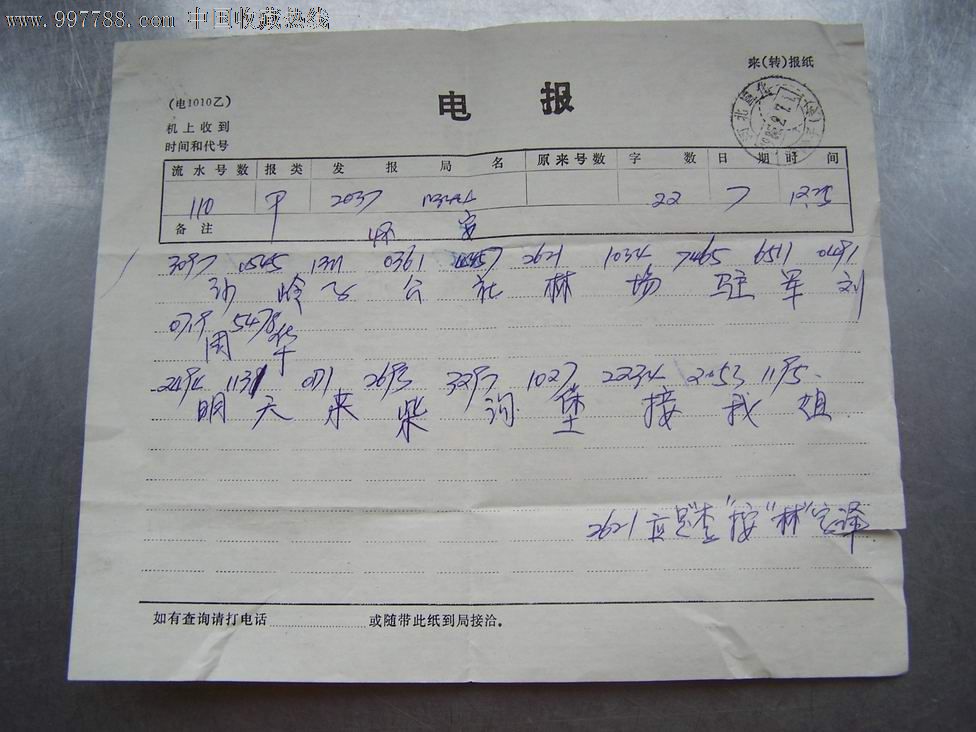 www.997788.com 中国收藏热线
来(转)报纸
(电1010乙)
电 报
机上收到
时间和代号
流水号数 报类 发报局名 原来号数 字数 日期 时间
110 2037 22 7 1225
备注 怀安
3097 0545 0361 2621 1034 7465 6511 0491
沙岭子公社林场驻军刘
0719 5478
国华
2494 1131 0171 2693 3297 1027 2234 2053 1195
明天来柴沟堡接我 姐
2621应是"查"按"林"字译
如有查询请打电话 或随带此纸到局接洽。